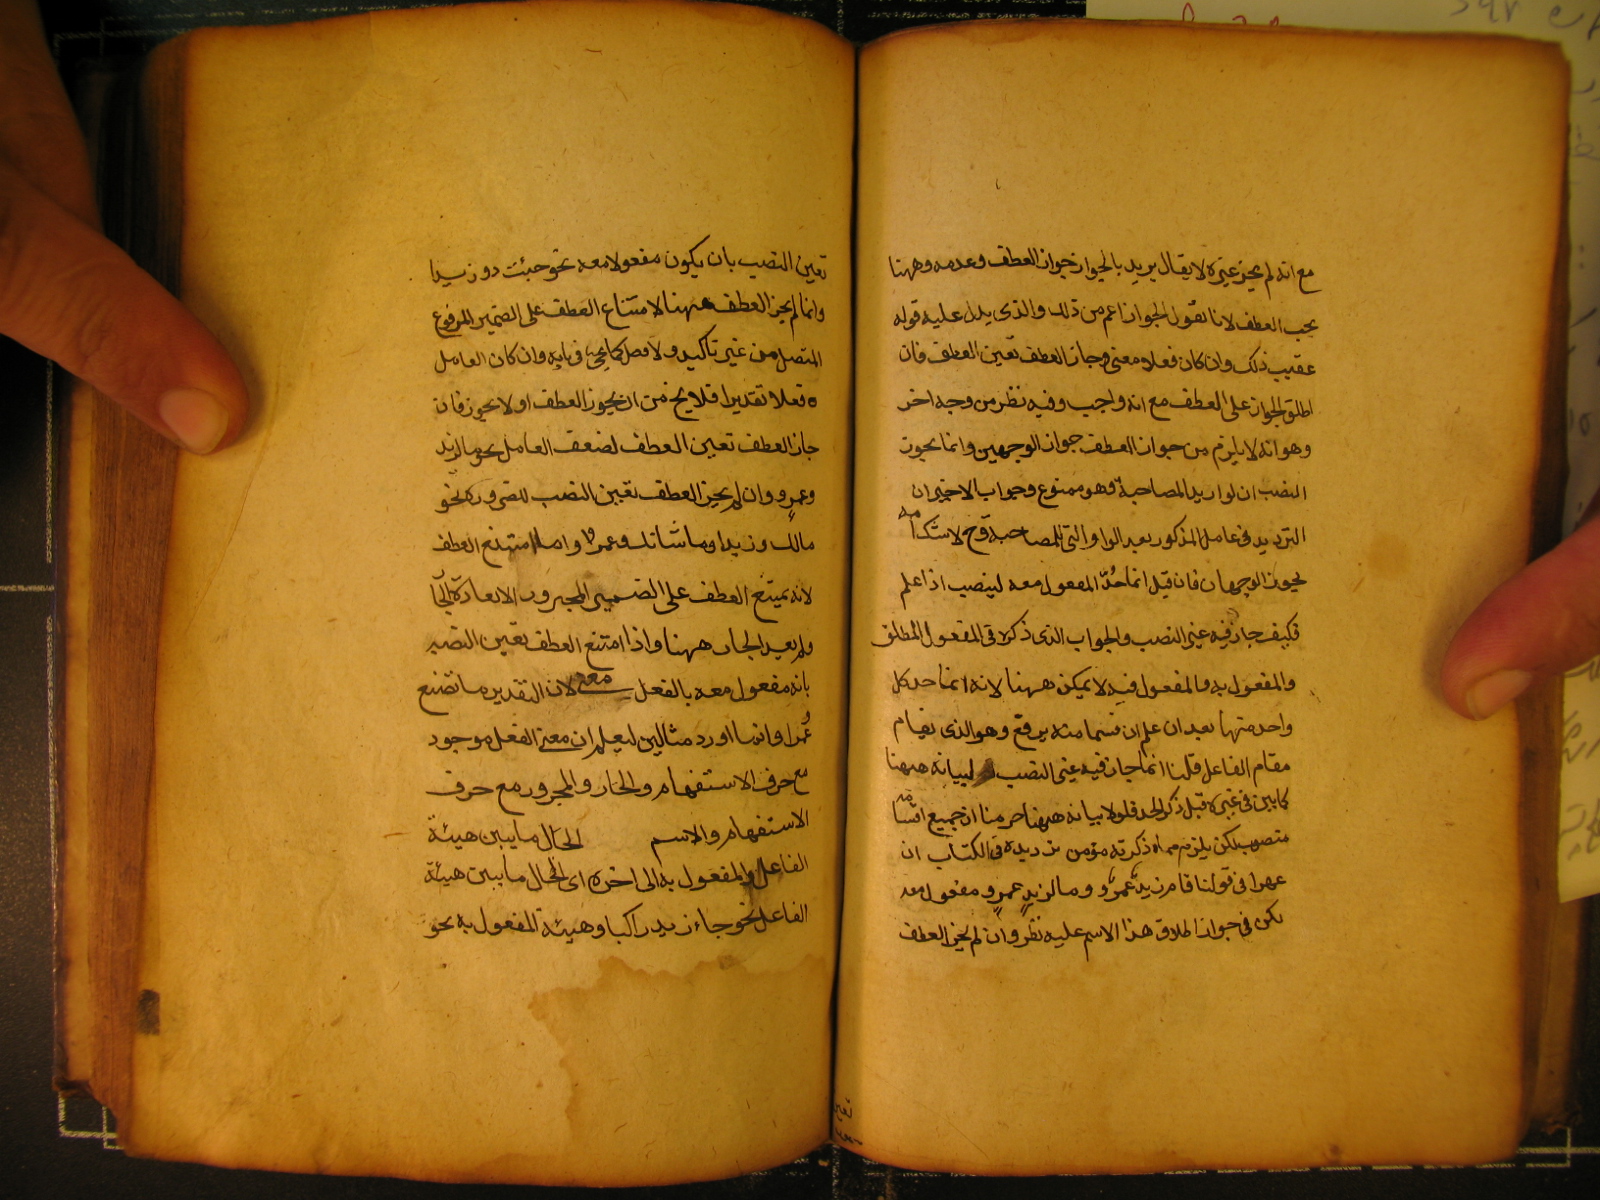 مع انه لم يجز غيره لا يقال يريد بالجواز جواز العطف وعدمه وههنا
يجب العطف لانا نقول الجواز اعم من ذلك والذى يدل عليه قوله
عقيب ذلك وان كان فعلا معنى وجاز العطف تعين العطف فان
اطلق الجواز على العطف مع انه واجب وفيه نظر من وجه اخر
وهو انه لا يلزم من جواز العطف جواز الوجهين وانما يجوز
النصب ان لو اريد المصاحبة وهو ممنوع وجواب الاخير ان
الترديد فى عامل المذكور بعد الواو التى للمصاحبة وح لا شك انه
يجوز الوجهان فان قيل انما حُدّ المفعول معه لينصب اذا علم
فكيف جاز فيه غير النصب والجواب الذى ذكره فى المفعول المطلق
والمفعول به والمفعول فيه لا يمكن ههنا لانه انما حد كل
واحد منها بعد ان علم ان قسما منه يرفع وهو الذى يقام
مقام الفاعل قلنا انما جاز فيه غير النصب لبيانه ههنا
كما بين فى غيره قبل ذكر الحد فلولا بيانه ههنا حرمنا ان جميع اقسامه
منصوب لكن يلزم مما ذكرته من ترديده فى الكتاب ان
عمرا فى قولنا قام زيد وعمرو وما لزيد وعمرو مفعول معه
لكن فى جواز اطلاق هذا الاسم عليه نظر وان لم يجز العطف
تعين
تعين النصب بان يكون مفعولا معه نحو جئت و زيدا
وانما لم يجز العطف ههنا لامتناع العطف على الضمير المرفوع
المتصل من غير تاكيد ولا فصل كما يجئ فى بابه وان كان العامل
فعلا تقديرا فلا يخ من ان يجوز العطف او لا يجوز فان
جاز العطف تعين العطف لضعف العامل نحو ما لزيد
وعمرو وان لم يجز العطف تعين النصب للضرورة نحو
مالك وزيدا وما شانك وعمرا وانما امتنع العطف
لانه يمتنع العطف على الضمير المجرور الا باعادة الجار
ولم يعد الجار ههنا واذا امتنع العطف تعين النصب
بانه مفعول معه بالفعل معنى لان التقدير ما تصنع
وعمرا وانما اورد مثالين ليعلم ان معنى الفعل موجود
مع حرف الاستفهام والجار والمجرور مع حرف
الاستفهام والاسم الحال ما يبين هيئة
الفاعل والمفعول به الى اخره اى الحال ما يبين هيئة
الفاعل نحو جاء زيد راكبا وهيئة المفعول به نحو